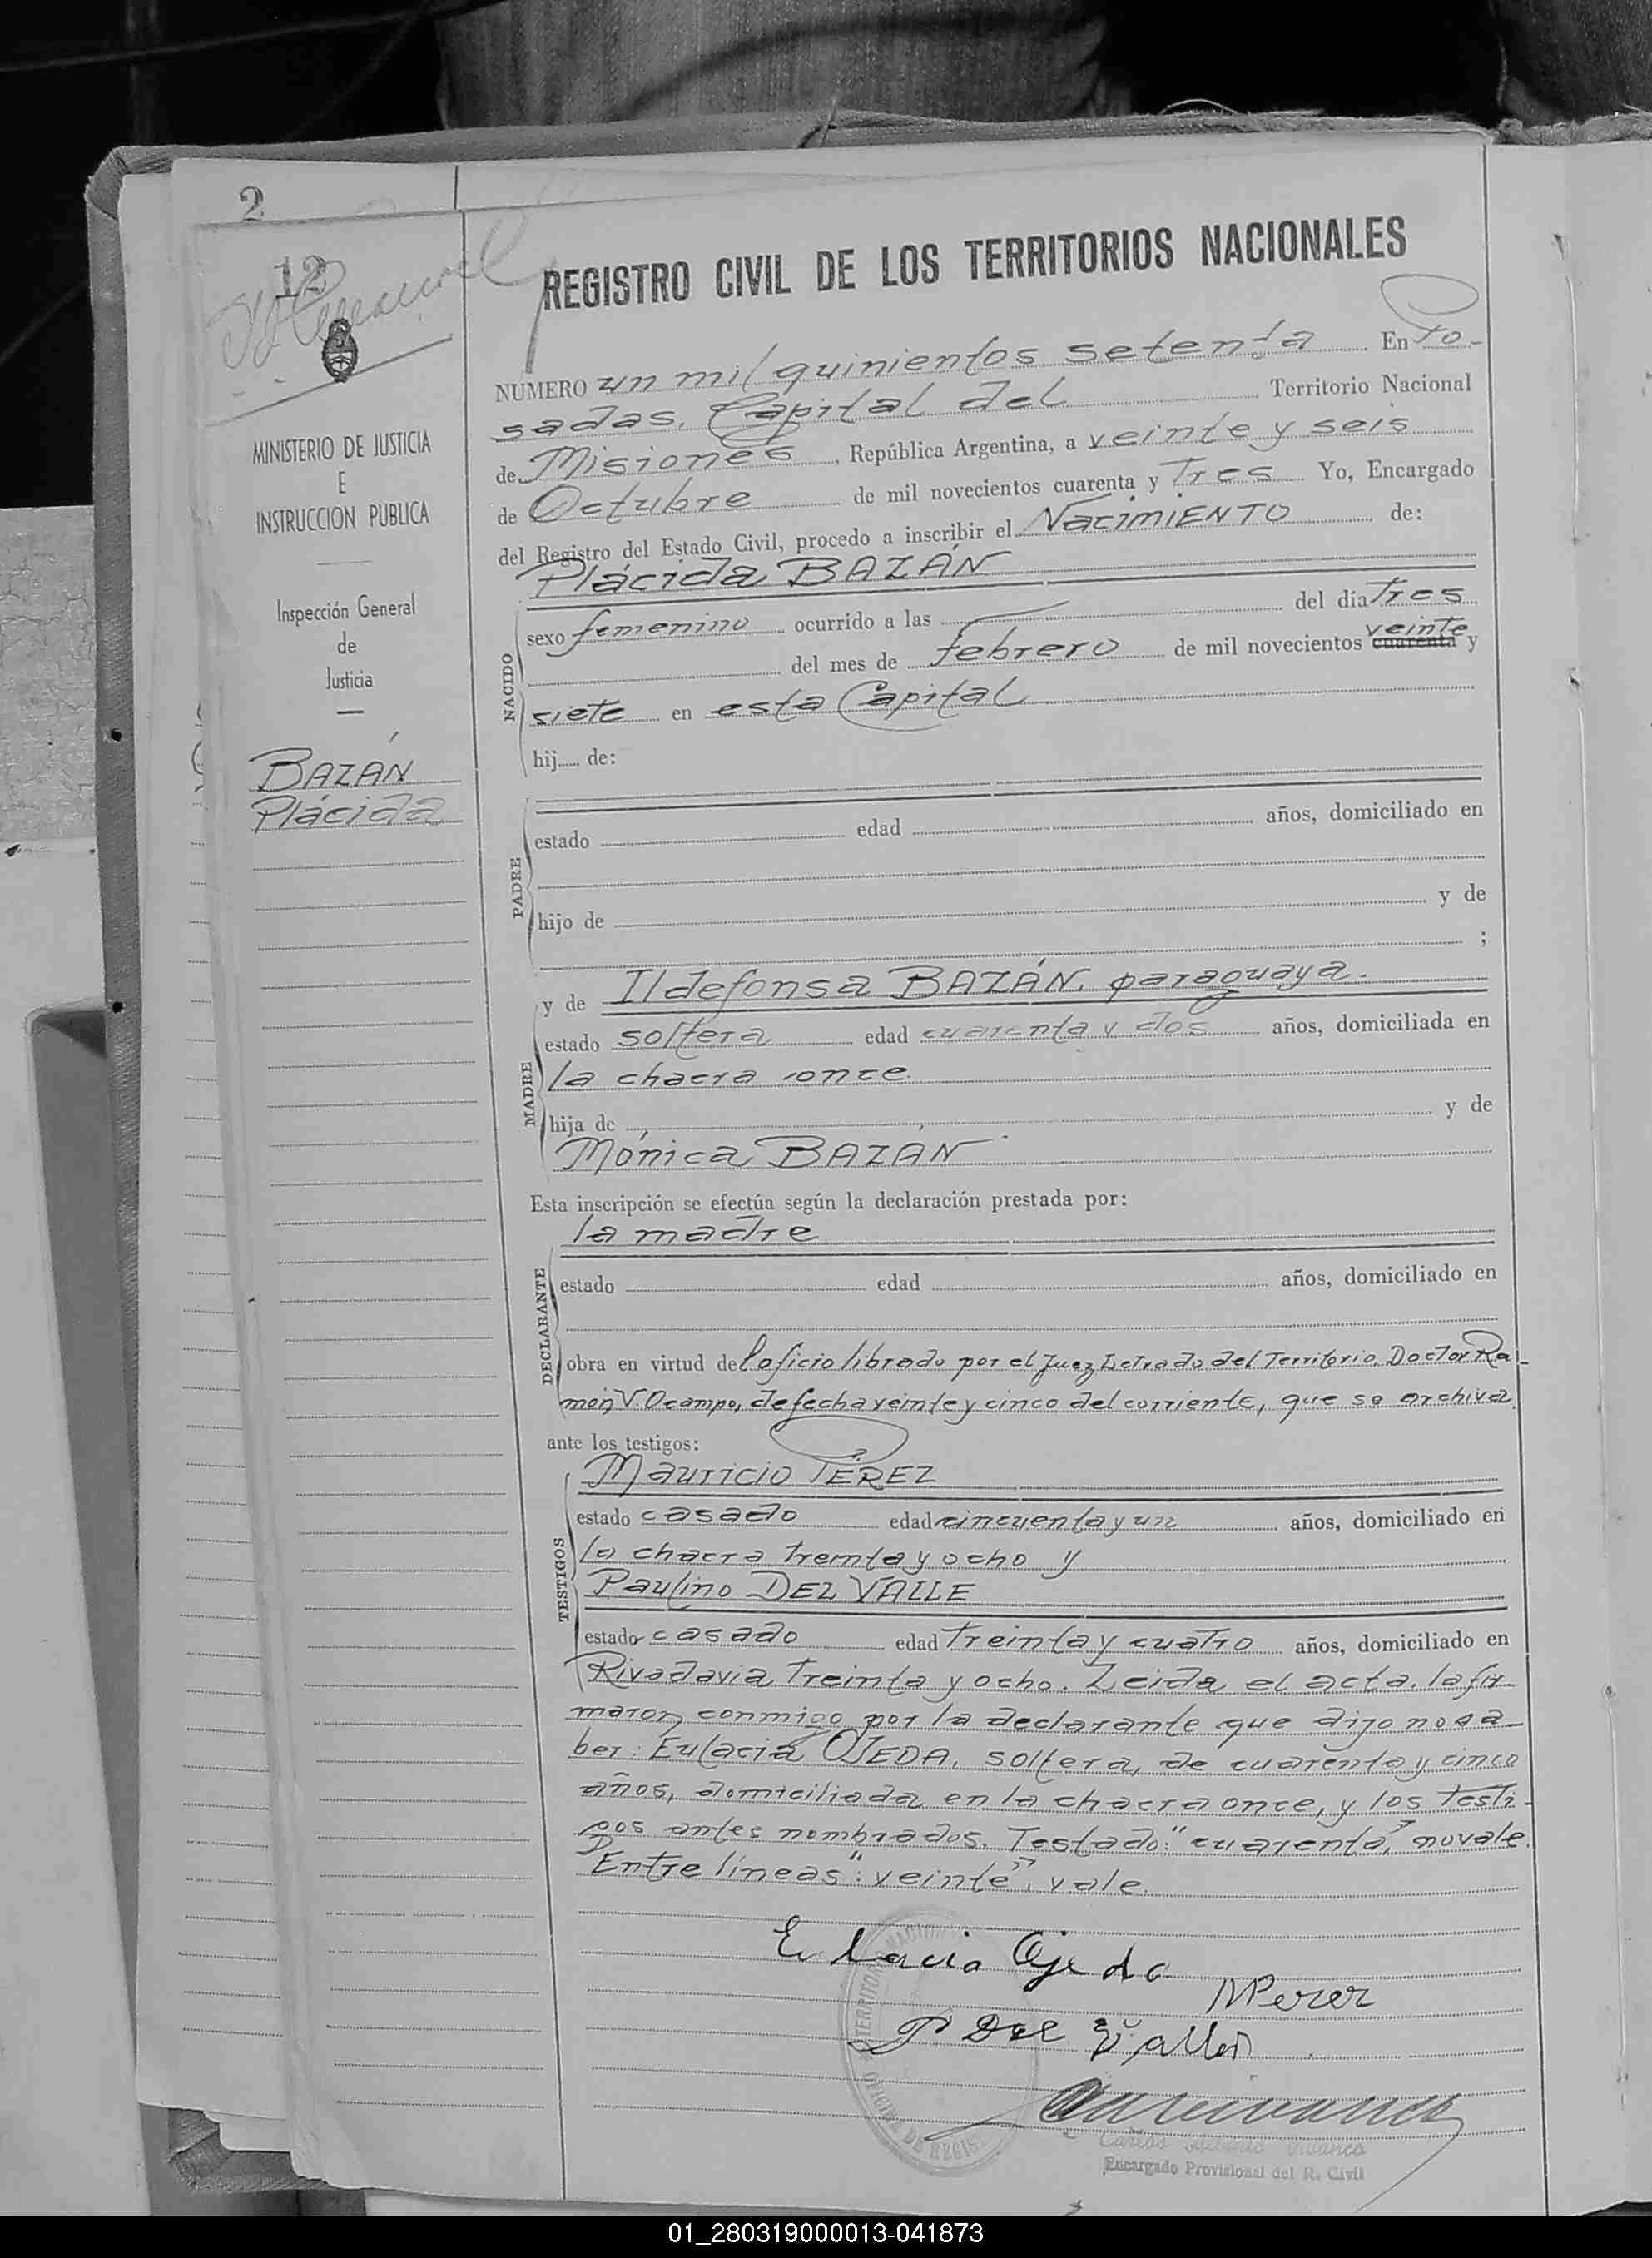 2
12
REGISTRO CIVIL DE LOS TERRITORIOS NACIONALES
NUMERO un mil quinientos setenta En Po-
sadas, Capital del Territorio Nacional
de Misiones, República Argentina, a veinte y seis
de Octubre de mil novecientos cuarenta y Tres Yo, Encargado
del Registro del Estado Civil, procedo a inscribir el NACIMIENTO de:
MINISTERIO DE JUSTICIA
E
INSTRUCCION PUBLICA
Inspección General
de
Justicia
BAZÁN
Plácida
NACIDO
Plácida BAZÁN
sexo femenino ocurrido a las del día Tres
veinte
del mes de febrero de mil novecientos cuarenta y
siete en esta Capital
hij..... de:
PADRE
estado edad años, domiciliado en
hijo de y de
;
MADRE
y de Ildefonsa BAZÁN, paraguaya.
estado soltera edad cuarenta y dos años, domiciliada en
la chacra once.
hija de y de
Mónica BAZAN
Esta inscripción se efectúa según la declaración prestada por:
DECLARANTE
la madre
estado edad años, domiciliado en
obra en virtud del oficio librado por el Juez Letrado del Territorio, Doctor Ra-
món V. Ocampo, de fecha veinte y cinco del corriente, que se archiva
ante los testigos:
TESTIGOS
Mauricio PÉREZ
estado casado edad cincuenta y un años, domiciliado en
la chacra treinta y ocho y
Paulino DEL VALLE
estado casado edad Treinta y cuatro años, domiciliado en
Rivadavia Treinta y ocho. Leida el acta, la fir-
maron conmigo por la declarante que dijo no sa-
ber: Eulacia OJEDA, soltera, de cuarenta y cinco
años, domiciliada en la chacra once, y los testi-
gos antes nombrados. Testado: "cuarenta", no vale.
Entre líneas: "veinte", vale.
Eulacia Ojeda
M Perez
P Del Valle
Encargado Provisional del R. Civil
01_280319000013-041873